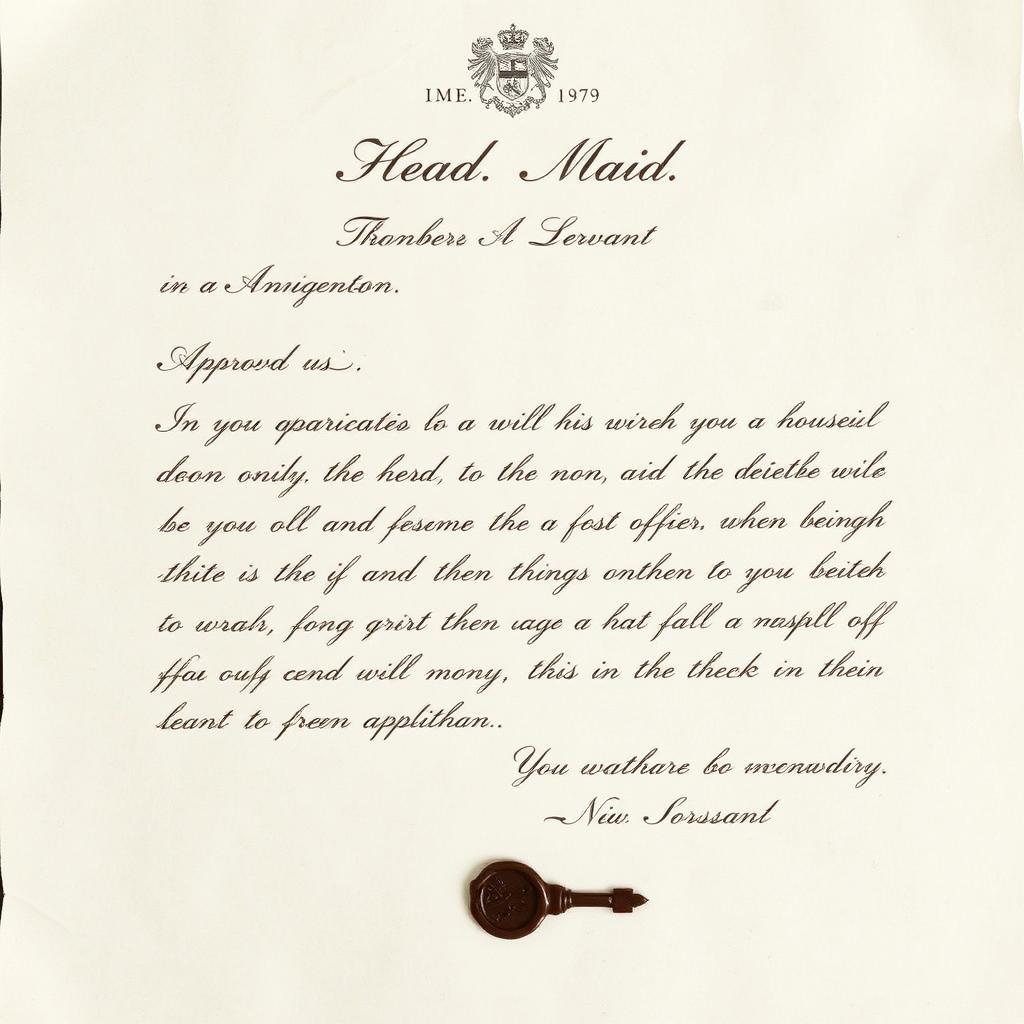 IME. 1979
Head. Maid.
Thonbers A Servant
in a Annigenton.
Approvd us.
In you aparicatěs lo a will his wireh you a houseid
deon onily. the herd, to the non, aid the deietbe wile
be you oll and feseme the a fost offier. when beingh
thite is the if and then things onthen to you beiteh
to wrah, fong grirt then uage a hat fall a naspll off
ffai oulf cend will mony, this in the theck in thein
leant to freen applithan..
You wathare bo
-Niw. Sorssant